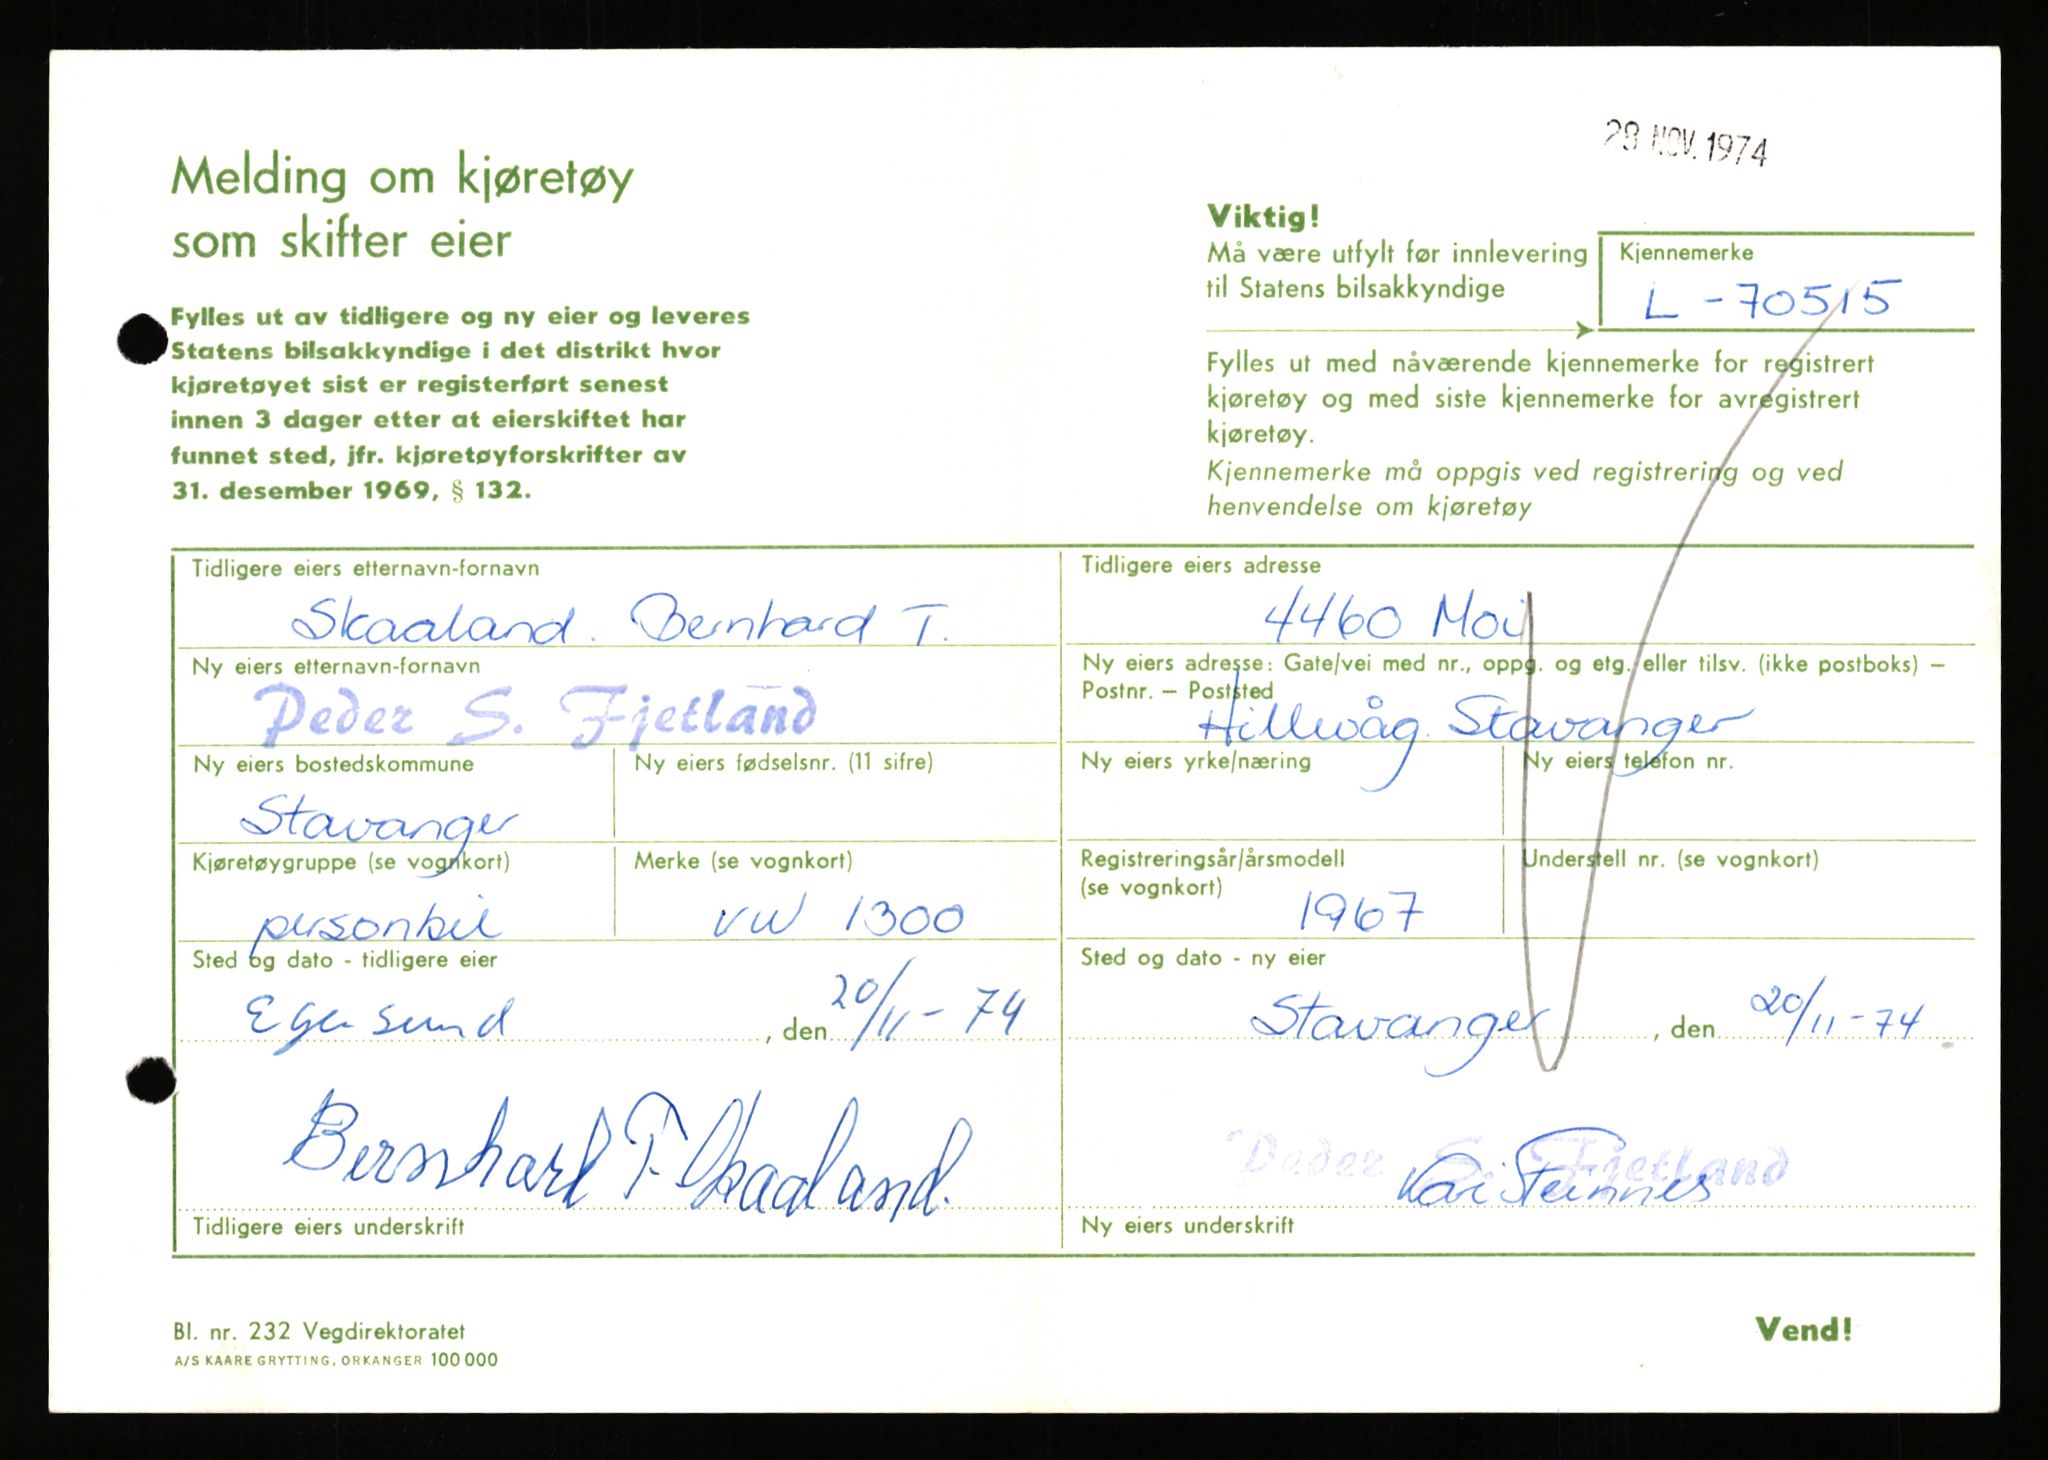 28 NOV. 1974
Melding om kjøretøy
som skifter eier
Fylles ut av tidligere og ny eier og leveres
Statens bilsakkyndige i det distrikt hvor
kjøretøyet sist er registerført senest
innen 3 dager etter at eierskiftet har
funnet sted, jfr. kjøretøyforskrifter av
31. desember 1969, § 132.
Viktig!
Må være utfylt før innlevering
til Statens bilsakkyndige
Kjennemerke
L - 70515
Fylles ut med nåværende kjennemerke for registrert
kjøretøy og med siste kjennemerke for avregistrert
kjøretøy.
Kjennemerke må oppgis ved registrering og ved
henvendelse om kjøretøy
Tidligere eiers etternavn-fornavn
Skaaland. Bernhard T.
Tidligere eiers adresse
4460 Moi
Ny eiers etternavn-fornavn
Peder S. Fjetland
Ny eiers adresse: Gate/vei med nr., oppg. og etg. eller tilsv. (ikke postboks) –
Postnr. – Poststed
Hillevåg. Stavanger
Ny eiers bostedskommune
Stavanger
Ny eiers fødselsnr. (11 sifre)
Ny eiers yrke/næring
Ny eiers telefon nr.
Kjøretøygruppe (se vognkort)
personbil
Merke (se vognkort)
VW 1300
Registreringsår/årsmodell
(se vognkort)
1967
Understell nr. (se vognkort)
Sted og dato - tidligere eier
Egersund, den 20/11-74
Sted og dato - ny eier
Stavanger, den 20/11-74
Bernhard T. Skaaland.
Tidligere eiers underskrift
Peder S. Fjetland
Kari Steinnes
Ny eiers underskrift
Bl. nr. 232 Vegdirektoratet
A/S KAARE GRYTTING, ORKANGER 100 000
Vend!